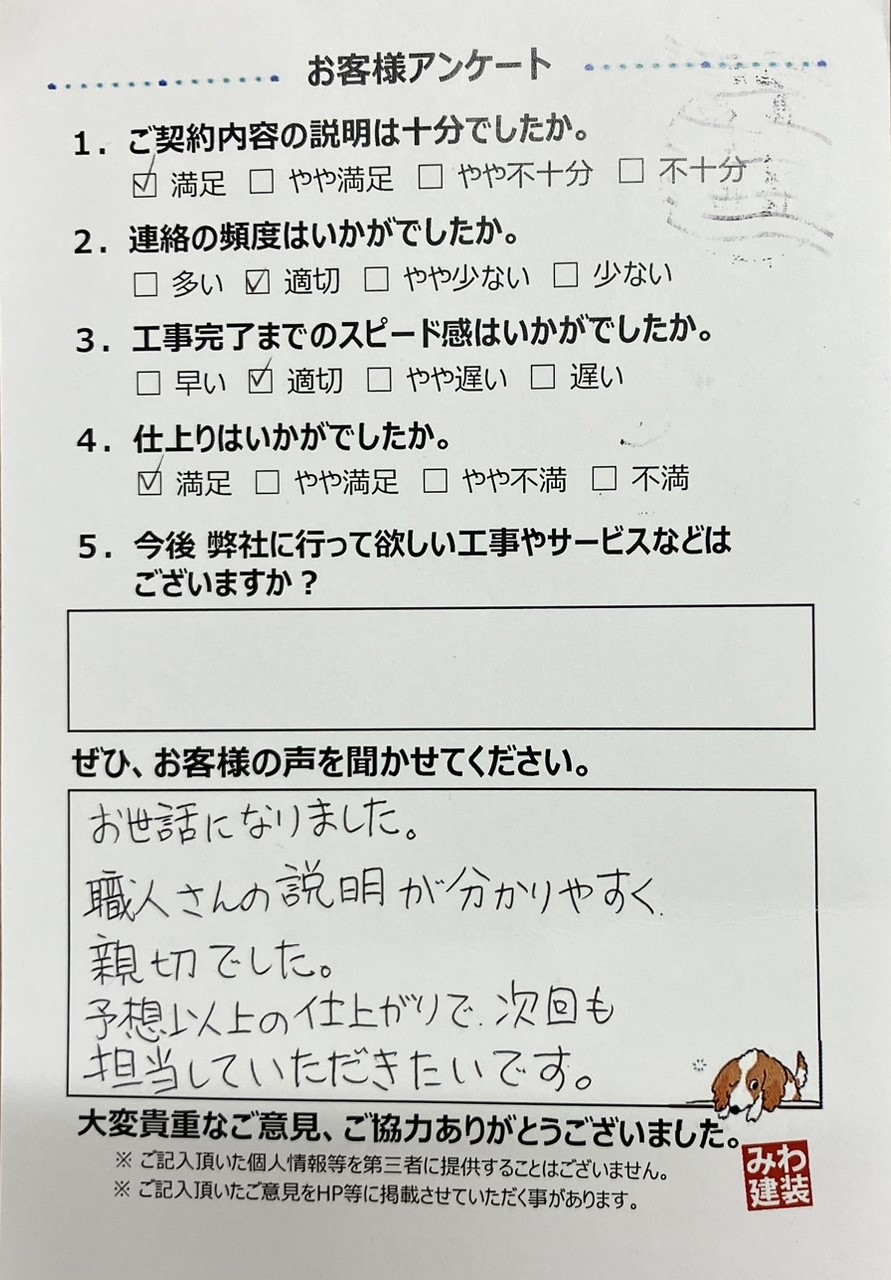 お客様アンケート
1. ご契約内容の説明は十分でしたか。
☑ 満足 □ やや満足 □ やや不十分 □ 不十分
2. 連絡の頻度はいかがでしたか。
□ 多い ☑ 適切 □ やや少ない □ 少ない
3. 工事完了までのスピード感はいかがでしたか。
□ 早い ☑ 適切 □ やや遅い □ 遅い
4. 仕上りはいかがでしたか。
☑ 満足 □ やや満足 □ やや不満 □ 不満
5. 今後 弊社に行って欲しい工事やサービスなどは
ございますか？
ぜひ、お客様の声を聞かせてください。
お世話になりました。
職人さんの説明が分かりやすく、
親切でした。
予想以上の仕上がりで、次回も
担当していただきたいです。
大変貴重なご意見、ご協力ありがとうございました。
※ ご記入頂いた個人情報等を第三者に提供することはございません。
※ ご記入頂いたご意見をHP等に掲載させていただく事があります。
みわ
建装